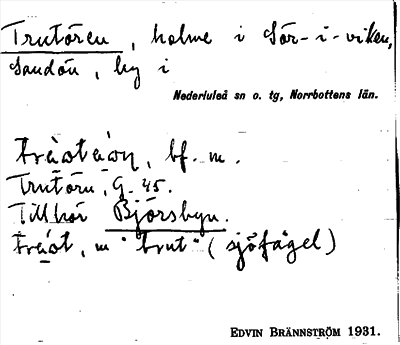 Trutören, holme i Sör-i-viken,
Sandön, by i
Nederluleå sn o. tg, Norrbottens län.
bf. m.
Trutörn, G. 45.
Tillhör Björsbyn.
m "trut" (sjöfågel)
EDVIN BRÄNNSTRÖM 1931.